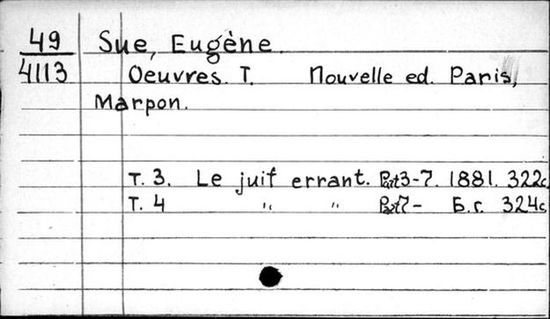 49 Sue, Eugène.
4113 Oeuvres. T. Nouvelle ed. Paris,
Marpon.
T. 3. Le juif errant. 3-7. 1881. 322c.
T. 4 " " 7- Б.г. 324c.